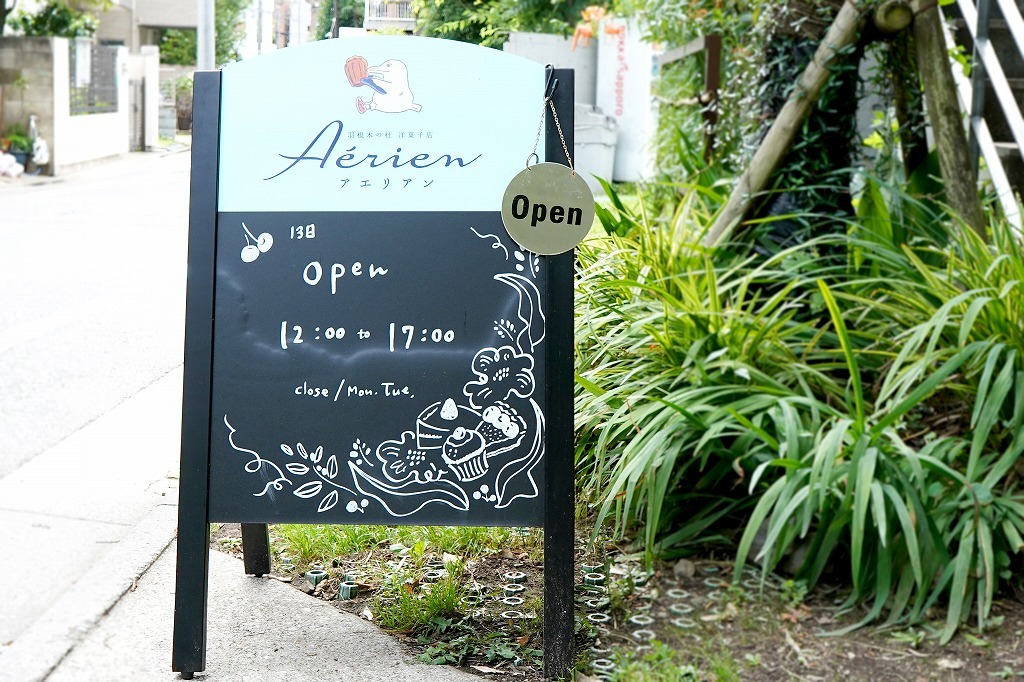 羽根木の杜 洋菓子店
Aérien
アエリアン
Open
13日
Open
12:00 to 17:00
close / Mon. Tue.